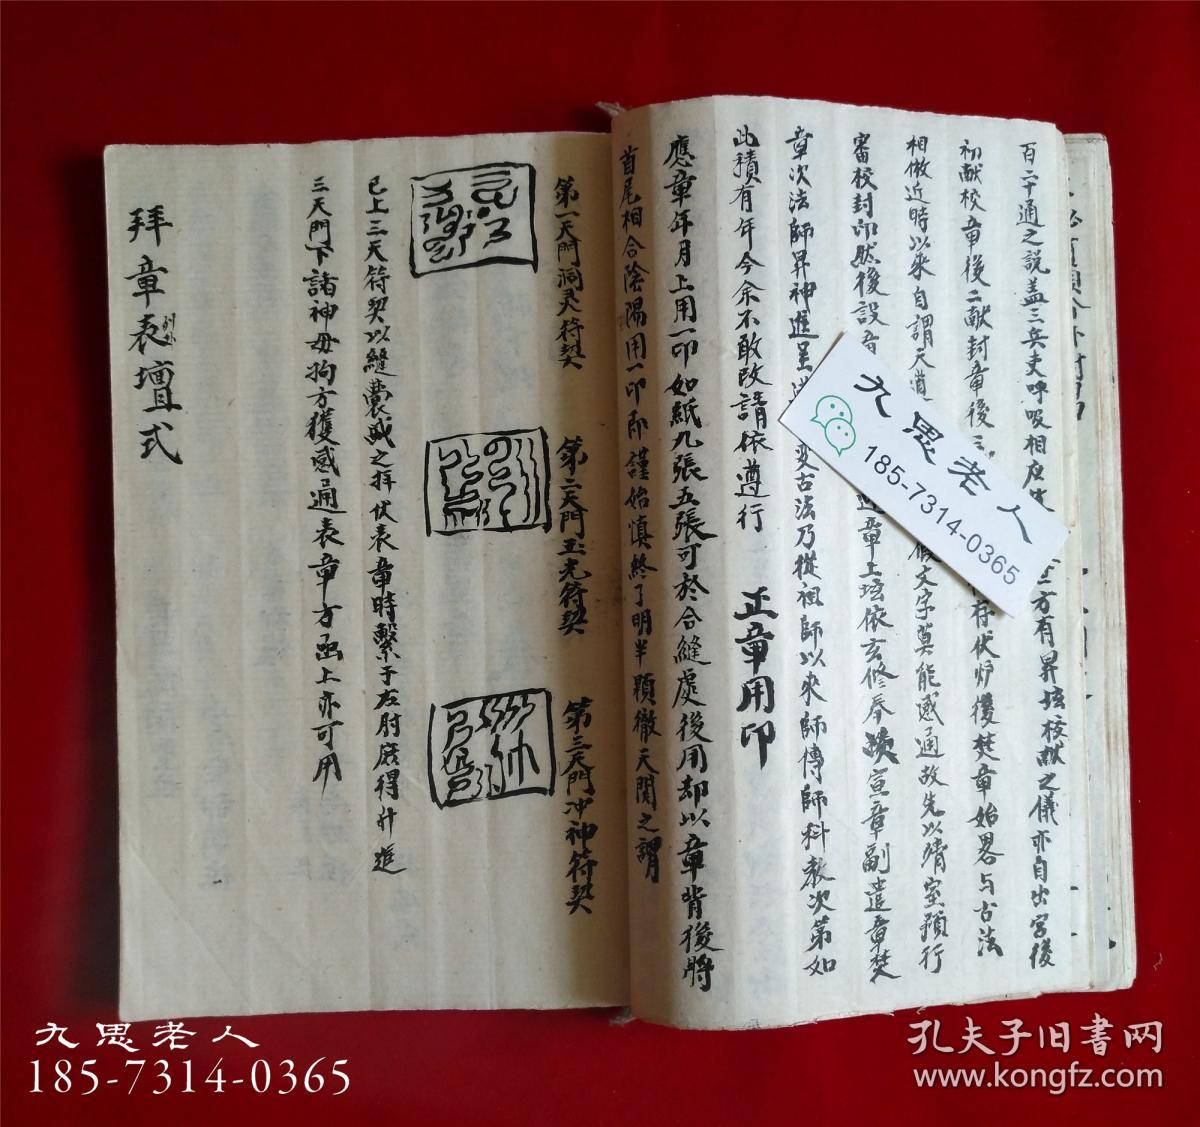 百二十通之説盖三兵吏呼吸相应
方有昇坛校献之儀亦自出官後
初献校章後二献封章後三
存伏炉後焚章始畧与古法
相倣近時以来自謂天道
文字莫能感通故先以靖室預行
審校封印然後設
章上坛依玄修奉
宣章副遣章焚
章次法師昇神進呈
变古法乃從祖師以來師傳師科教次第如
此積有年今余不敢改請依遵行
正章用印
應章年月上用一印如紙九張五張可於合縫處後用却以章背後將
首尾相合陰陽用一印即謹始慎終了明半顆徹天関之謂
第一天門洞灵符契
第二天門玉光符契
第三天門冲神符契
已上三天符契以縫囊盛之拜伏表章時繫于左肘庶得升進
三天門下諸神毋拘方獲感通表章方函上亦可用
拜章表壇式
九思老人
185-7314-0365
九思老人
185-7314-0365
孔夫子旧書网
www.kongfz.com